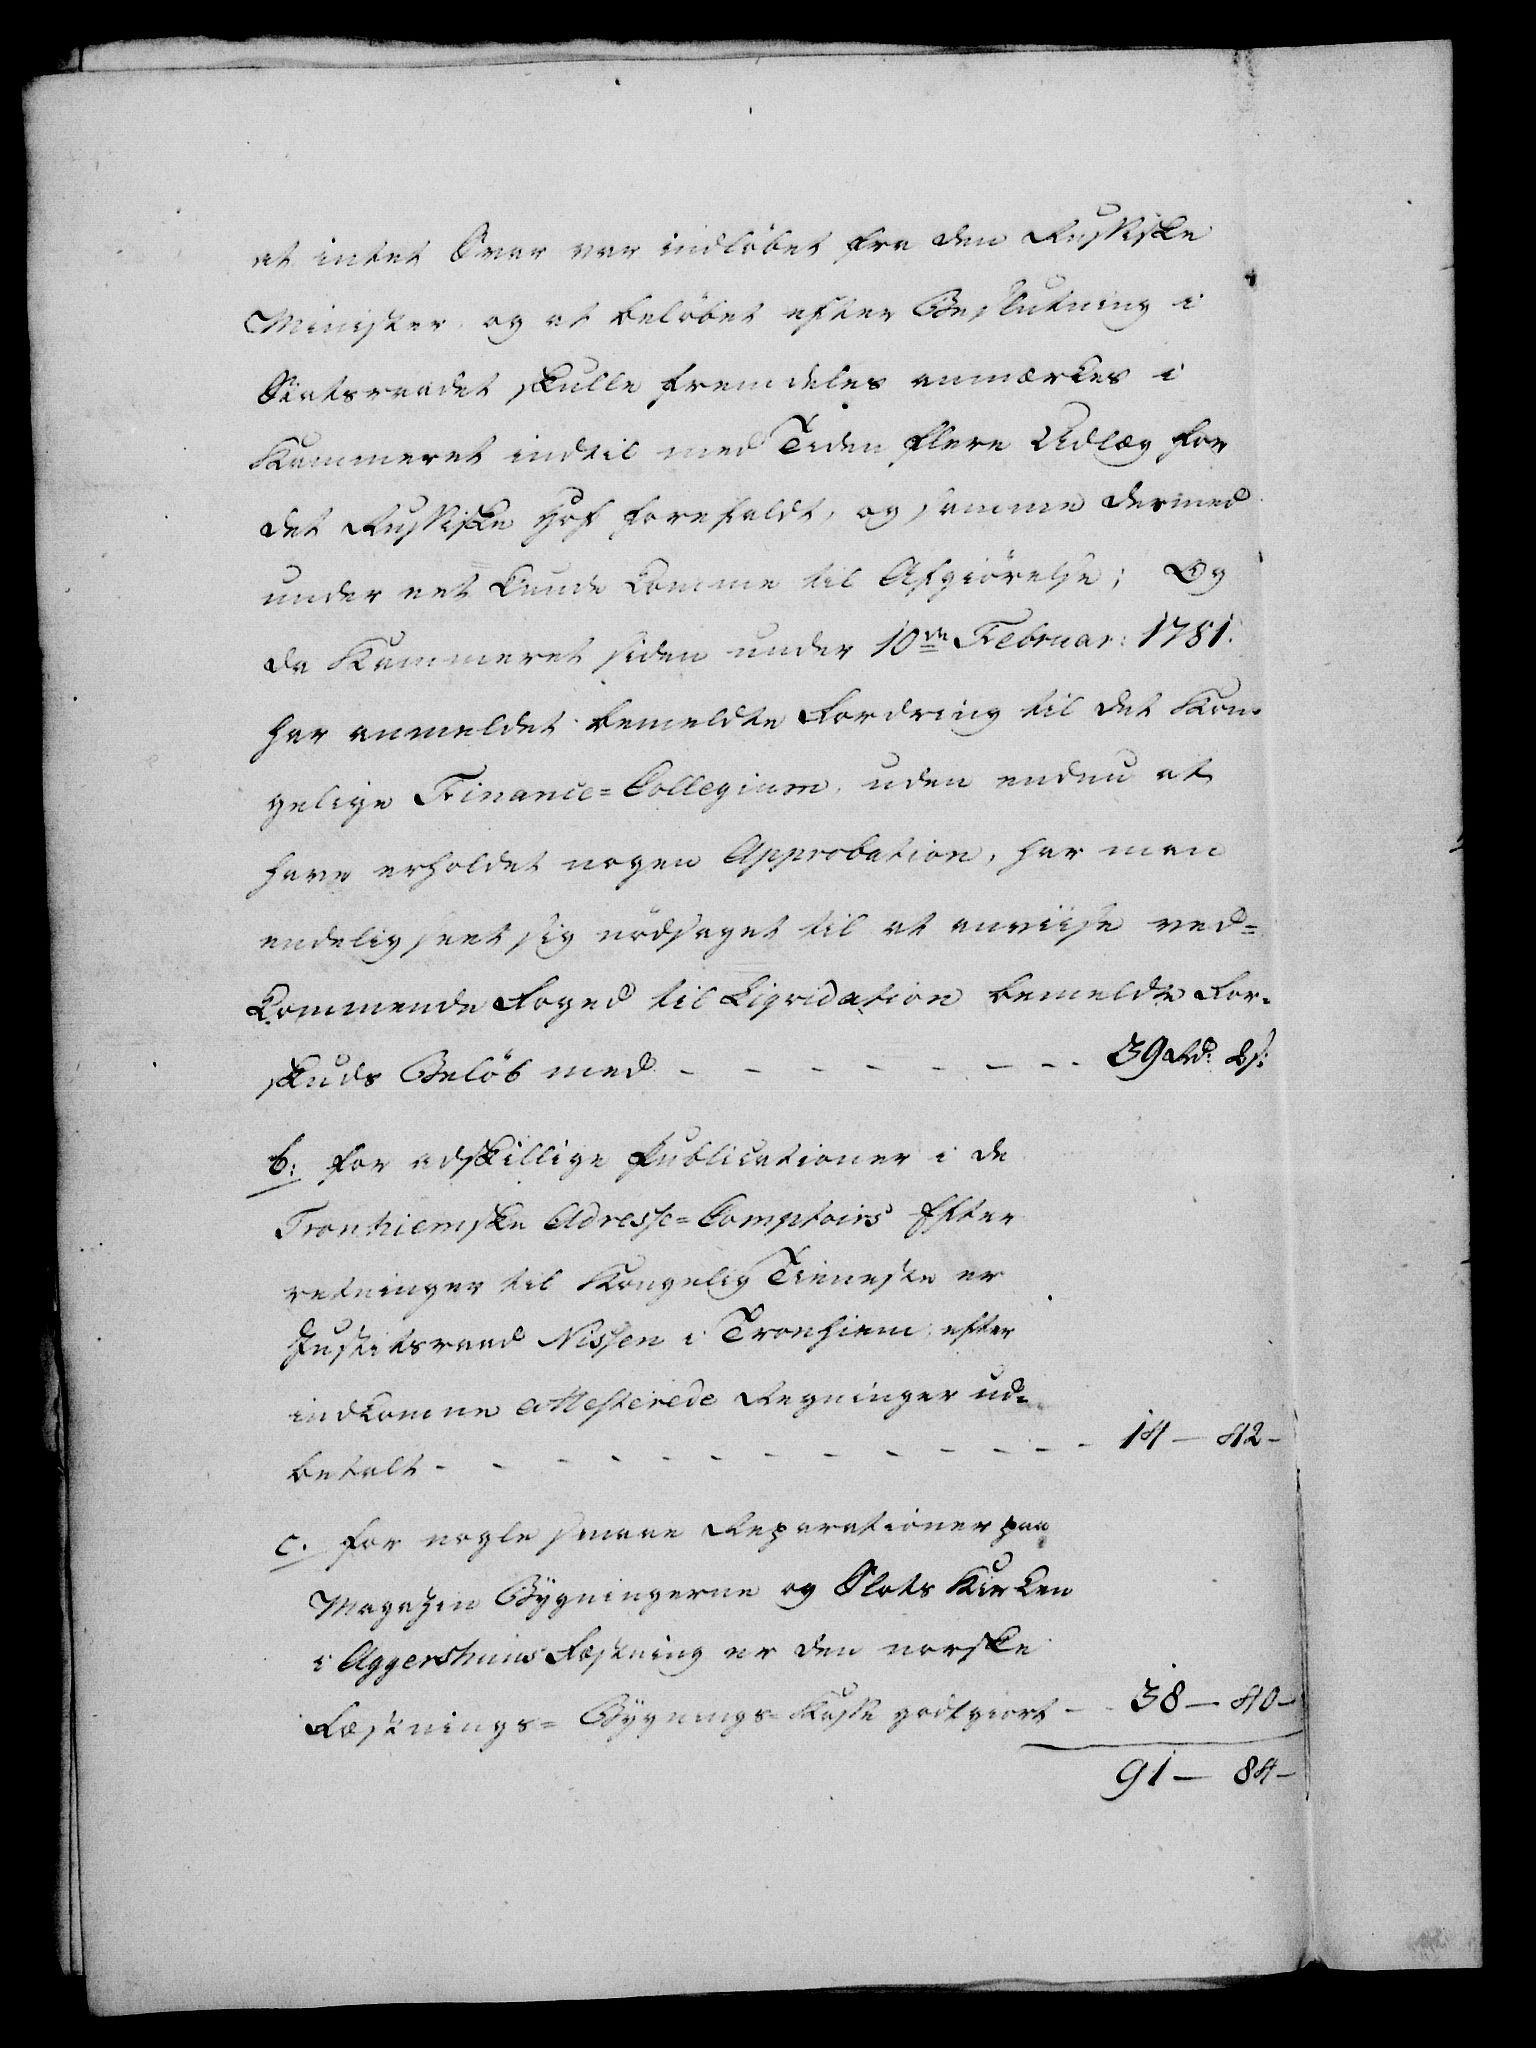 at intet Svar var indløbet fra den Russiske
Minister, og at beløbet efter Beslutning i
Statsraadet skulle fremdeles anmærkes i
Kammeret indtil med Tiden flere Udlæg for
det Russiske Hof forefaldt, og samme dermed
under eet kunde komme til Afgiörelse; Og
da Kammeret siden under 10de Februar: 1781.
har anmeldet bemeldte Fordring til det Kon-
gelige Finance=Collegium, uden endnu at
have erholdet nogen Approbation, har man
endelig seet sig nödsaget til at anviise ved=
kommende Foged til Liqvidation bemeldte For-
skuds Beløb med - - - - - - - - 39 Rd: 2 s:
b: for adskillige Publicationer i de
Tronhiemske Adresse=Comptoirs Efter
retninger til Kongelig Tieneste er
Justitsraad Nissen i Tronhiem, efter
indkomne attesterede Regninger ud-
betalt - - - - - - - - - - - - 14 — 42 -
c. for nogle smaae Reparationer paa
Magazin Bygningerne og Slots Kirken
i Aggershuus Fæstning er den norske
Fæstnings= Bygnings= Kasse godtgiort - - 38 — 40 -
91 — 84 -